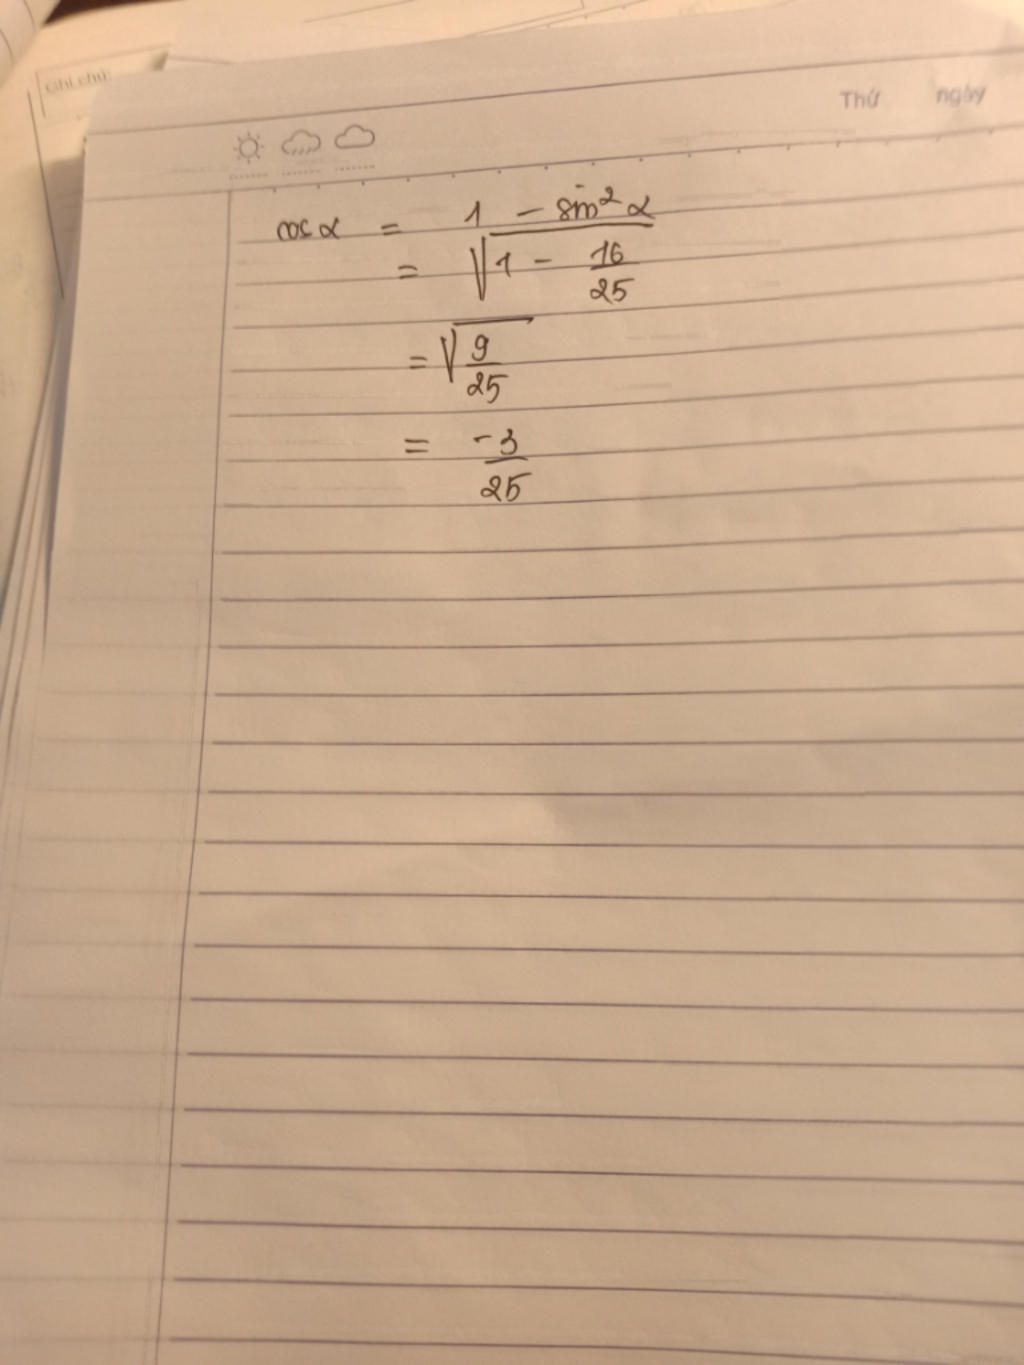 Ghi chú:
Thứ ngày
cos α = 1 - sin² α
= √1 - 16/25
= √9/25
= -3/25